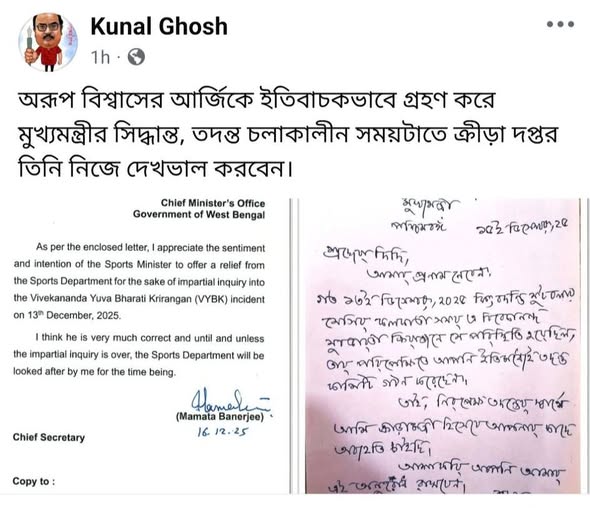 Kunal Ghosh
1h ·
অরূপ বিশ্বাসের আর্জিকে ইতিবাচকভাবে গ্রহণ করে
মুখ্যমন্ত্রীর সিদ্ধান্ত, তদন্ত চলাকালীন সময়টাতে ক্রীড়া দপ্তর
তিনি নিজে দেখভাল করবেন।
Chief Minister's Office
Government of West Bengal
As per the enclosed letter, I appreciate the sentiment
and intention of the Sports Minister to offer a relief from
the Sports Department for the sake of impartial inquiry into
the Vivekananda Yuva Bharati Krirangan (VYBK) incident
on 13th December, 2025.
I think he is very much correct and until and unless
the impartial inquiry is over, the Sports Department will be
looked after by me for the time being.
(Mamata Banerjee)
16.12.25
Chief Secretary
Copy to :
মুখ্যমন্ত্রী
পশ্চিমবঙ্গ
১৫ই ডিসেম্বর, ২৫
শ্রদ্ধেয় দিদি,
আমার প্রণাম নেবেন।
গত ১৩ই ডিসেম্বর, ২০২৫ কিংবদন্তি ফুটবলার
মেসির কলকাতা সফর ও বিবেকানন্দ
যুবভারতী ক্রীড়াঙ্গনে যে পরিস্থিতি হয়েছিল,
তার পরিপ্রেক্ষিতে আপনি ইতিমধ্যেই তদন্ত
কমিটি গঠন করেছেন।
তাই, নিরপেক্ষ তদন্তের স্বার্থে
আমি ক্রীড়ামন্ত্রী হিসেবে আপনার কাছে
অব্যাহতি চাইছি।
আশাকরি আপনি আমার
এই অনুরোধ রাখবেন।